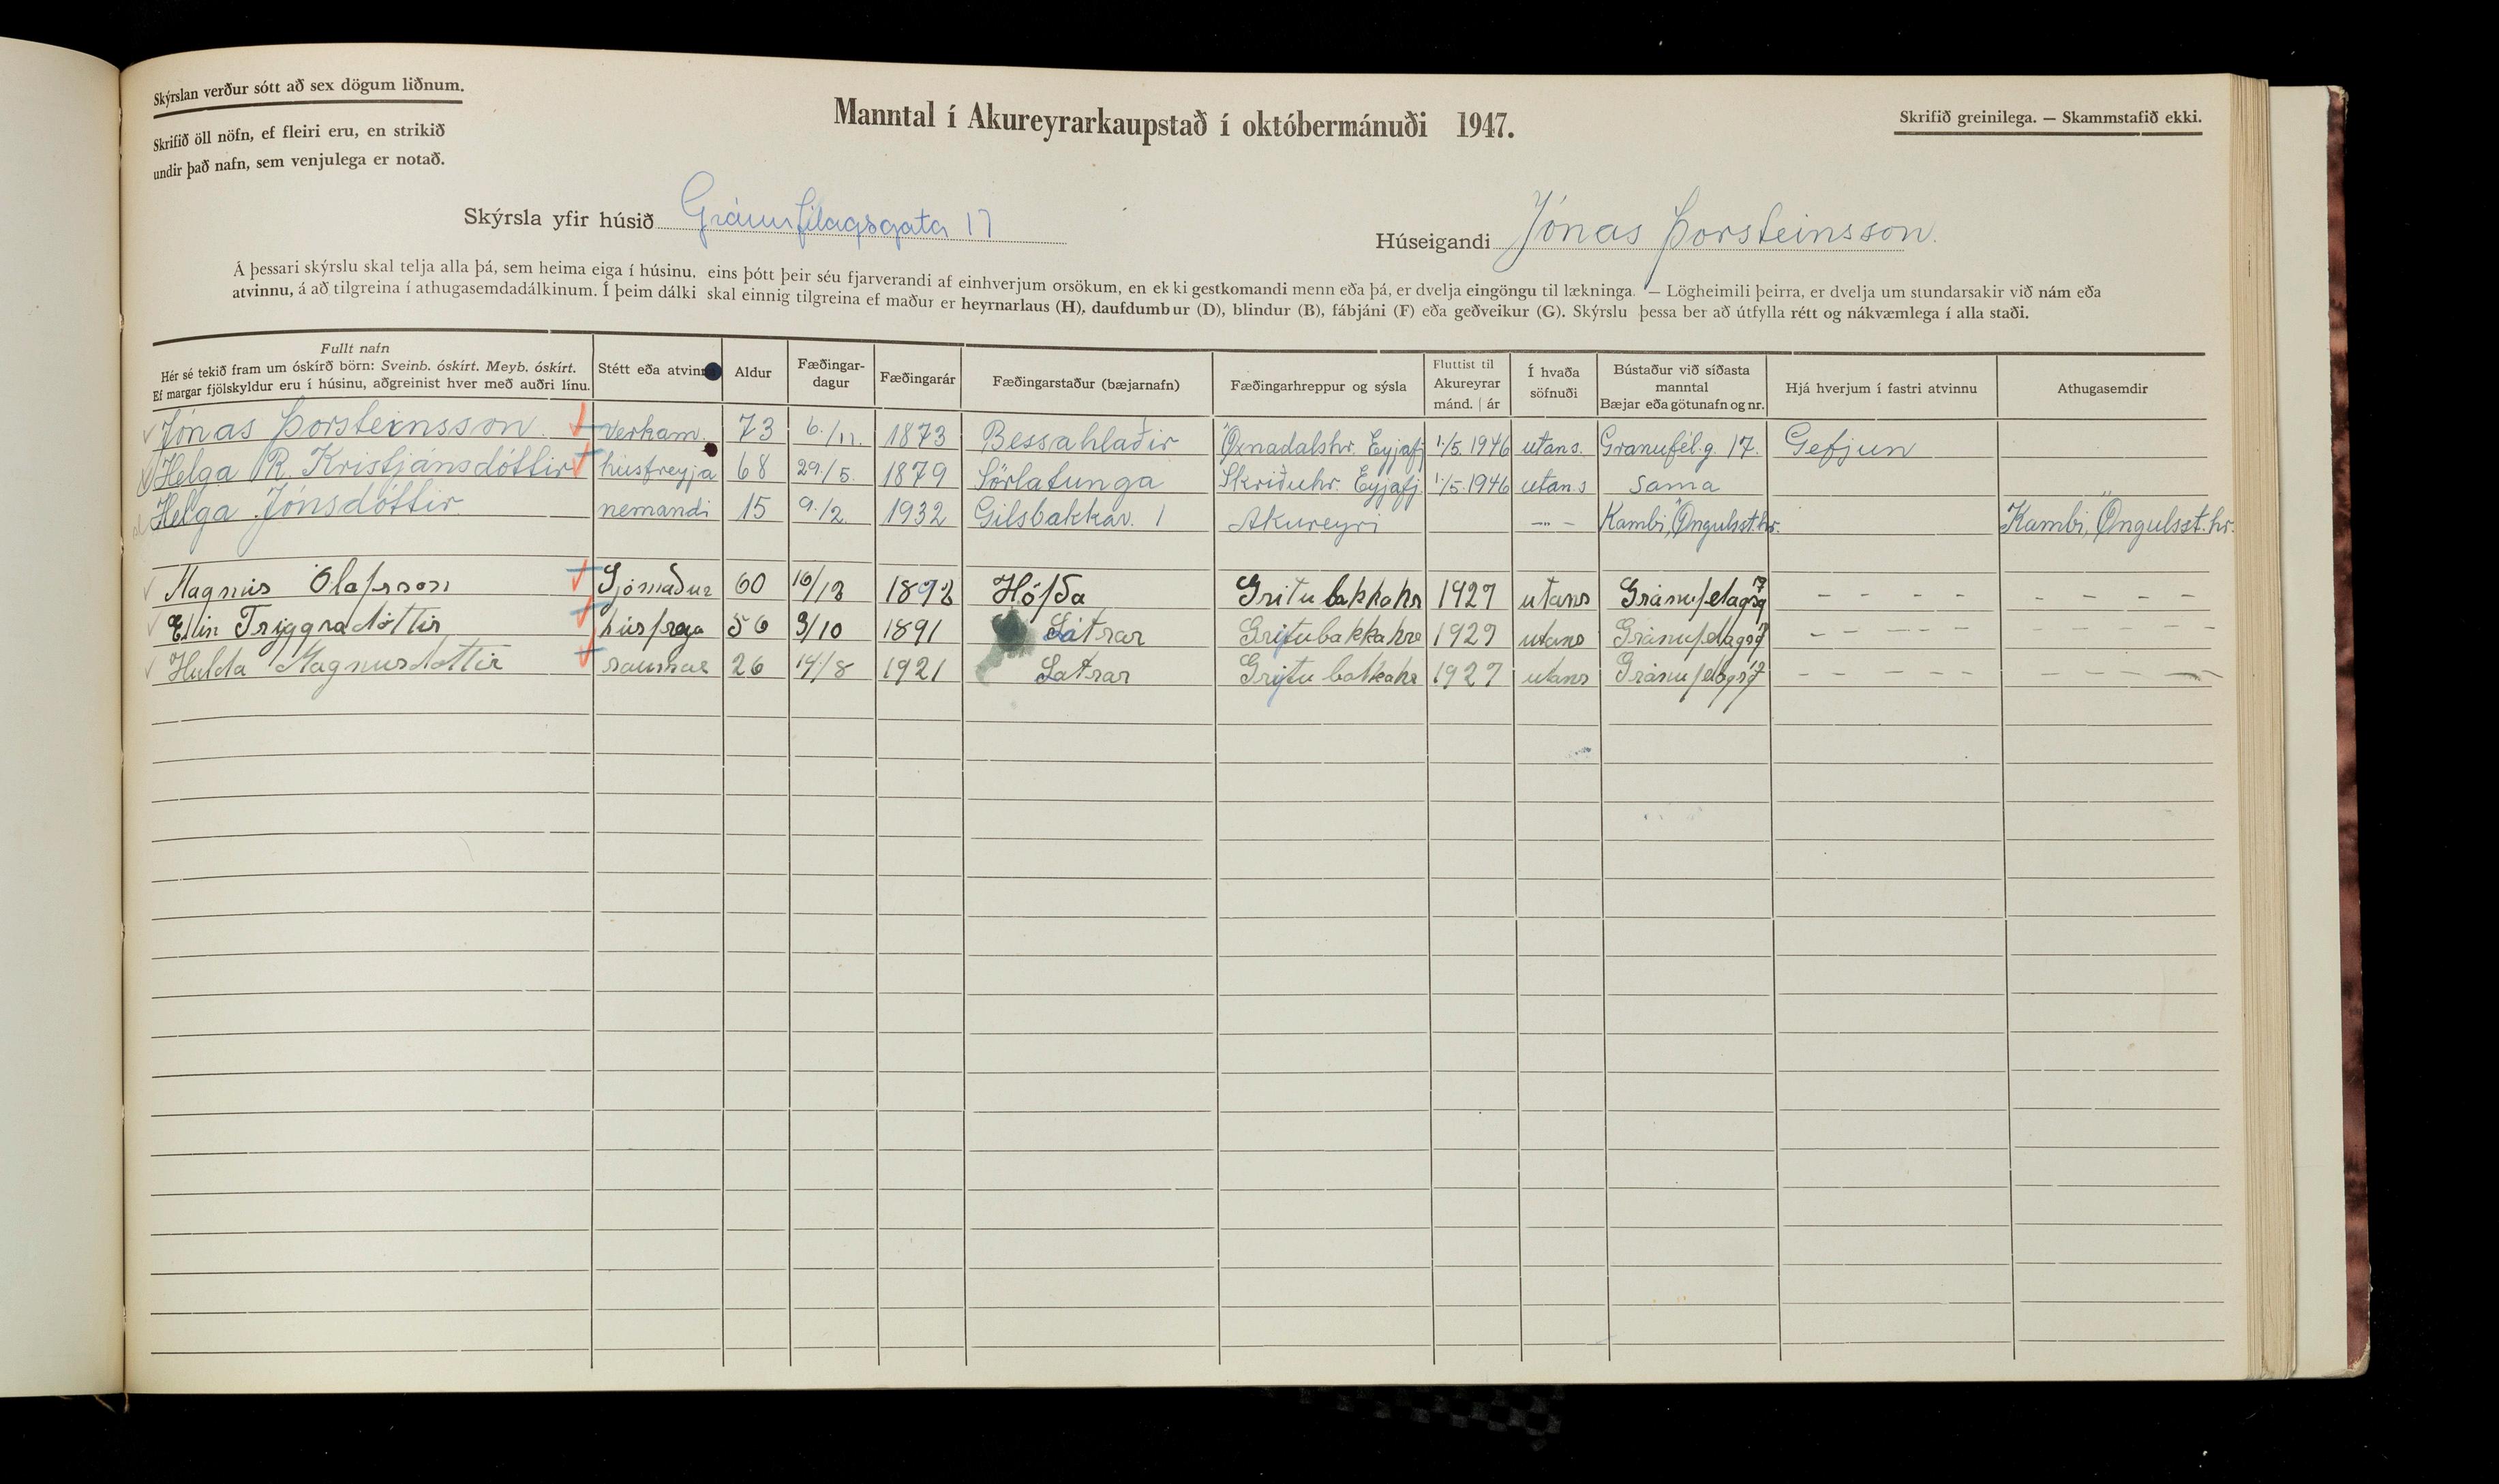 Skýrslan verður sótt að sex dögum liðnum.
Skrifið öll nöfn, ef fleiri eru, en strikið
undir það nafn, sem venjulega er notað.
Manntal í Akureyrarkaupstað í októbermánuði 1947.
Skrifið greinilega. — Skammstafið ekki.
Skýrsla yfir húsið Gránufélagsgata 17
Húseigandi Jónas Þorsteinsson.
Á þessari skýrslu skal telja alla þá, sem heima eiga í húsinu, eins þótt þeir séu fjarverandi af einhverjum orsökum, en ekki gestkomandi menn eða þá, er dvelja eingöngu til lækninga. — Lögheimili þeirra, er dvelja um stundarsakir við nám eða
atvinnu, á að tilgreina í athugasemdadálkinum. Í þeim dálki skal einnig tilgreina ef maður er heyrnarlaus (H), daufdumbur (D), blindur (B), fábjáni (F) eða geðveikur (G). Skýrslu þessa ber að útfylla rétt og nákvæmlega í alla staði.
Fullt nafn
Hér sé tekið fram um óskírð börn: Sveinb. óskírt. Meyb. óskírt.
Ef margar fjölskyldur eru í húsinu, aðgreinist hver með auðri línu.
Stétt eða atvinna
Aldur
Fæðingar-
dagur
Fæðingarár
Fæðingarstaður (bæjarnafn)
Fæðingarhreppur og sýsla
Fluttist til
Akureyrar
mánd. | ár
Í hvaða
söfnuði
Bústaður við síðasta
manntal
Bæjar eða götunafn og nr.
Hjá hverjum í fastri atvinnu
Athugasemdir
Jónas Þorsteinsson. Verkam. 73 6./11. 1873 Bessahlaðir Öxnadalshr. Eyjafj 1./5. 1946 utans. Granufél.g. 17. Gefjun
Helga R. Kristjánsdóttir húsfreyja 68 29./5. 1879 Sörlatunga Skriðuhr. Eyjafj. 1./5. 1946 utan.s sama
Helga Jónsdóttir nemandi 15 9./2. 1932 Gilsbakkav. 1 Akureyri — — Kambi, Öngulsst.hr. Kambi, Öngulsst.hr.
Magnús Ólafsson Sjómaður 60 Höfða Gritubakkahr 1927 utans Gránufelagsg 17 - - - - - - - -
Ellin Triggvadóttir húsfreya 56 3/10 1891 Látrar Gritubakkahre 1927 utans Gránufelagsg 17 - - - - - - - -
Hulda Magnusdottir saumar 26 14/8 1921 Latrar Gritubakkahr 1927 utans Gránufelagsg 17 - - - - - - - -